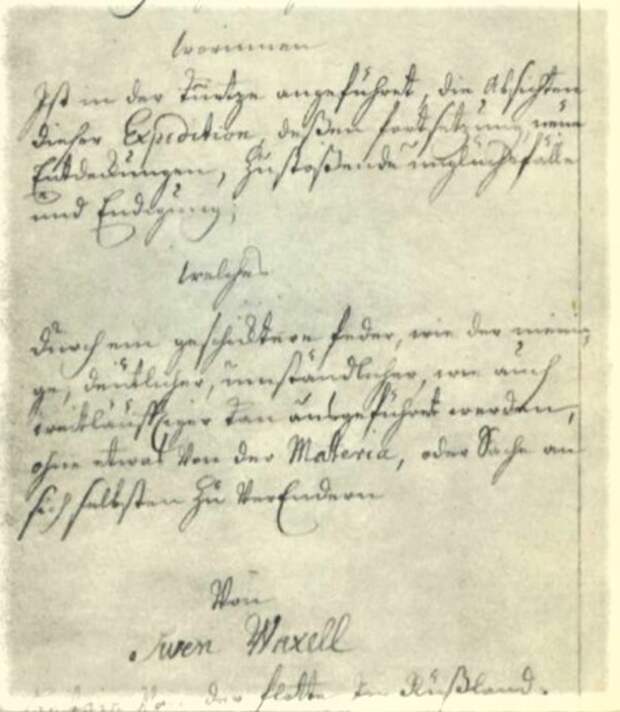 worinnen
Ist in der Kürtze angeführet, die Absichten
dießer Expedition, deßen fortsetzung, neüe
Entdeckungen, Zustoßende unglücksfälle
und Endigung;
welches
durch ein geschicktere feder, wie der meini-
ge, deütlicher, ümständlicher, wie auch
weitläufftiger kan aüsgeführet werden,
ohne etwas Von der Materia, oder Sache an
sich selbsten zu VerEndern
Von
Swen Waxell
der flotte in Rüßland.